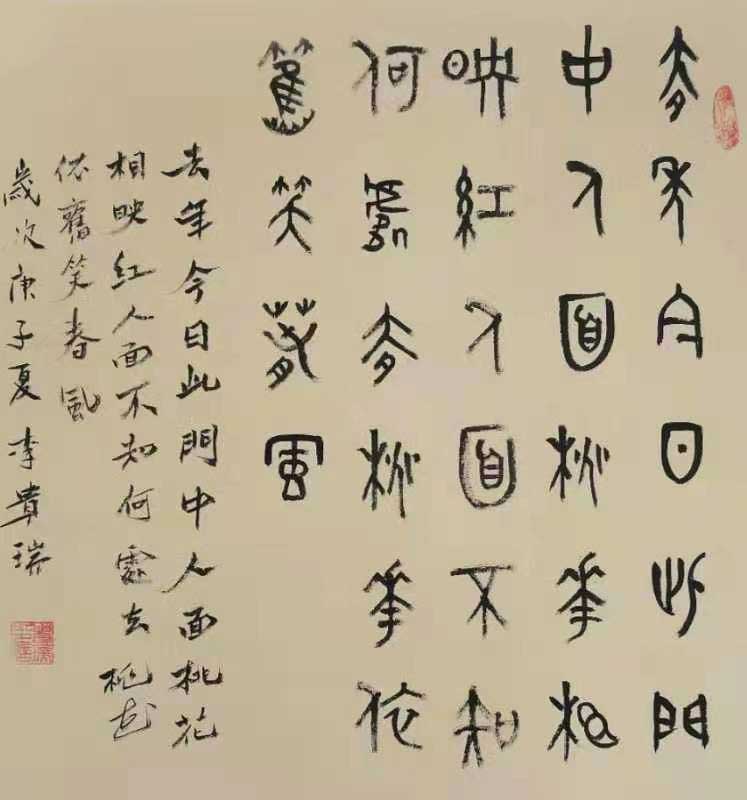 去年今日此門
中人面桃花相
映紅人面不知
何處去桃花依
舊笑春風
去年今日此門中人面桃花
相映紅人面不知何處去桃花
依舊笑春風
歲次庚子夏李貴瑞